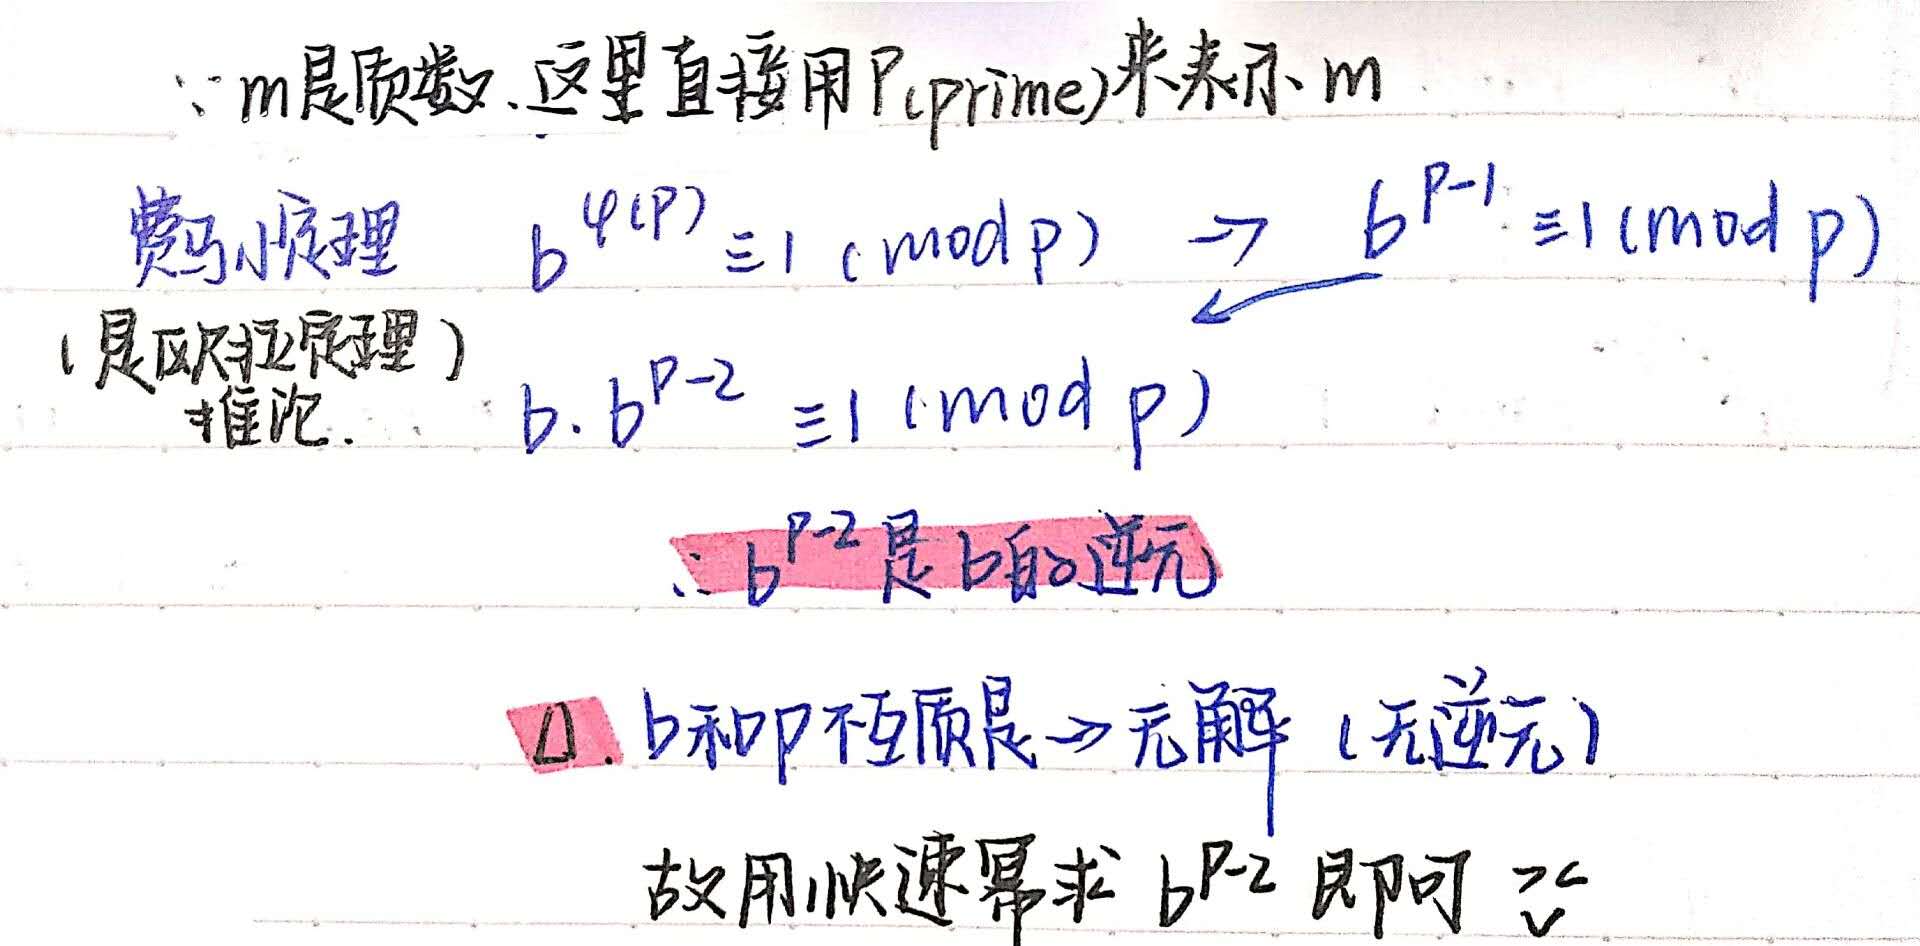 ∵m是质数.这里直接用P(prime)来表示m
费马小定理 b^φ(P) ≡1 (mod p) → b^P-1 ≡1(mod p)
(是欧拉定理)
推论. b·b^P-2 ≡1 (mod p)
∴b^P-2是b的逆元
△. b和p不互质是→无解 (无逆元)
故用快速幂求 b^P-2 即可